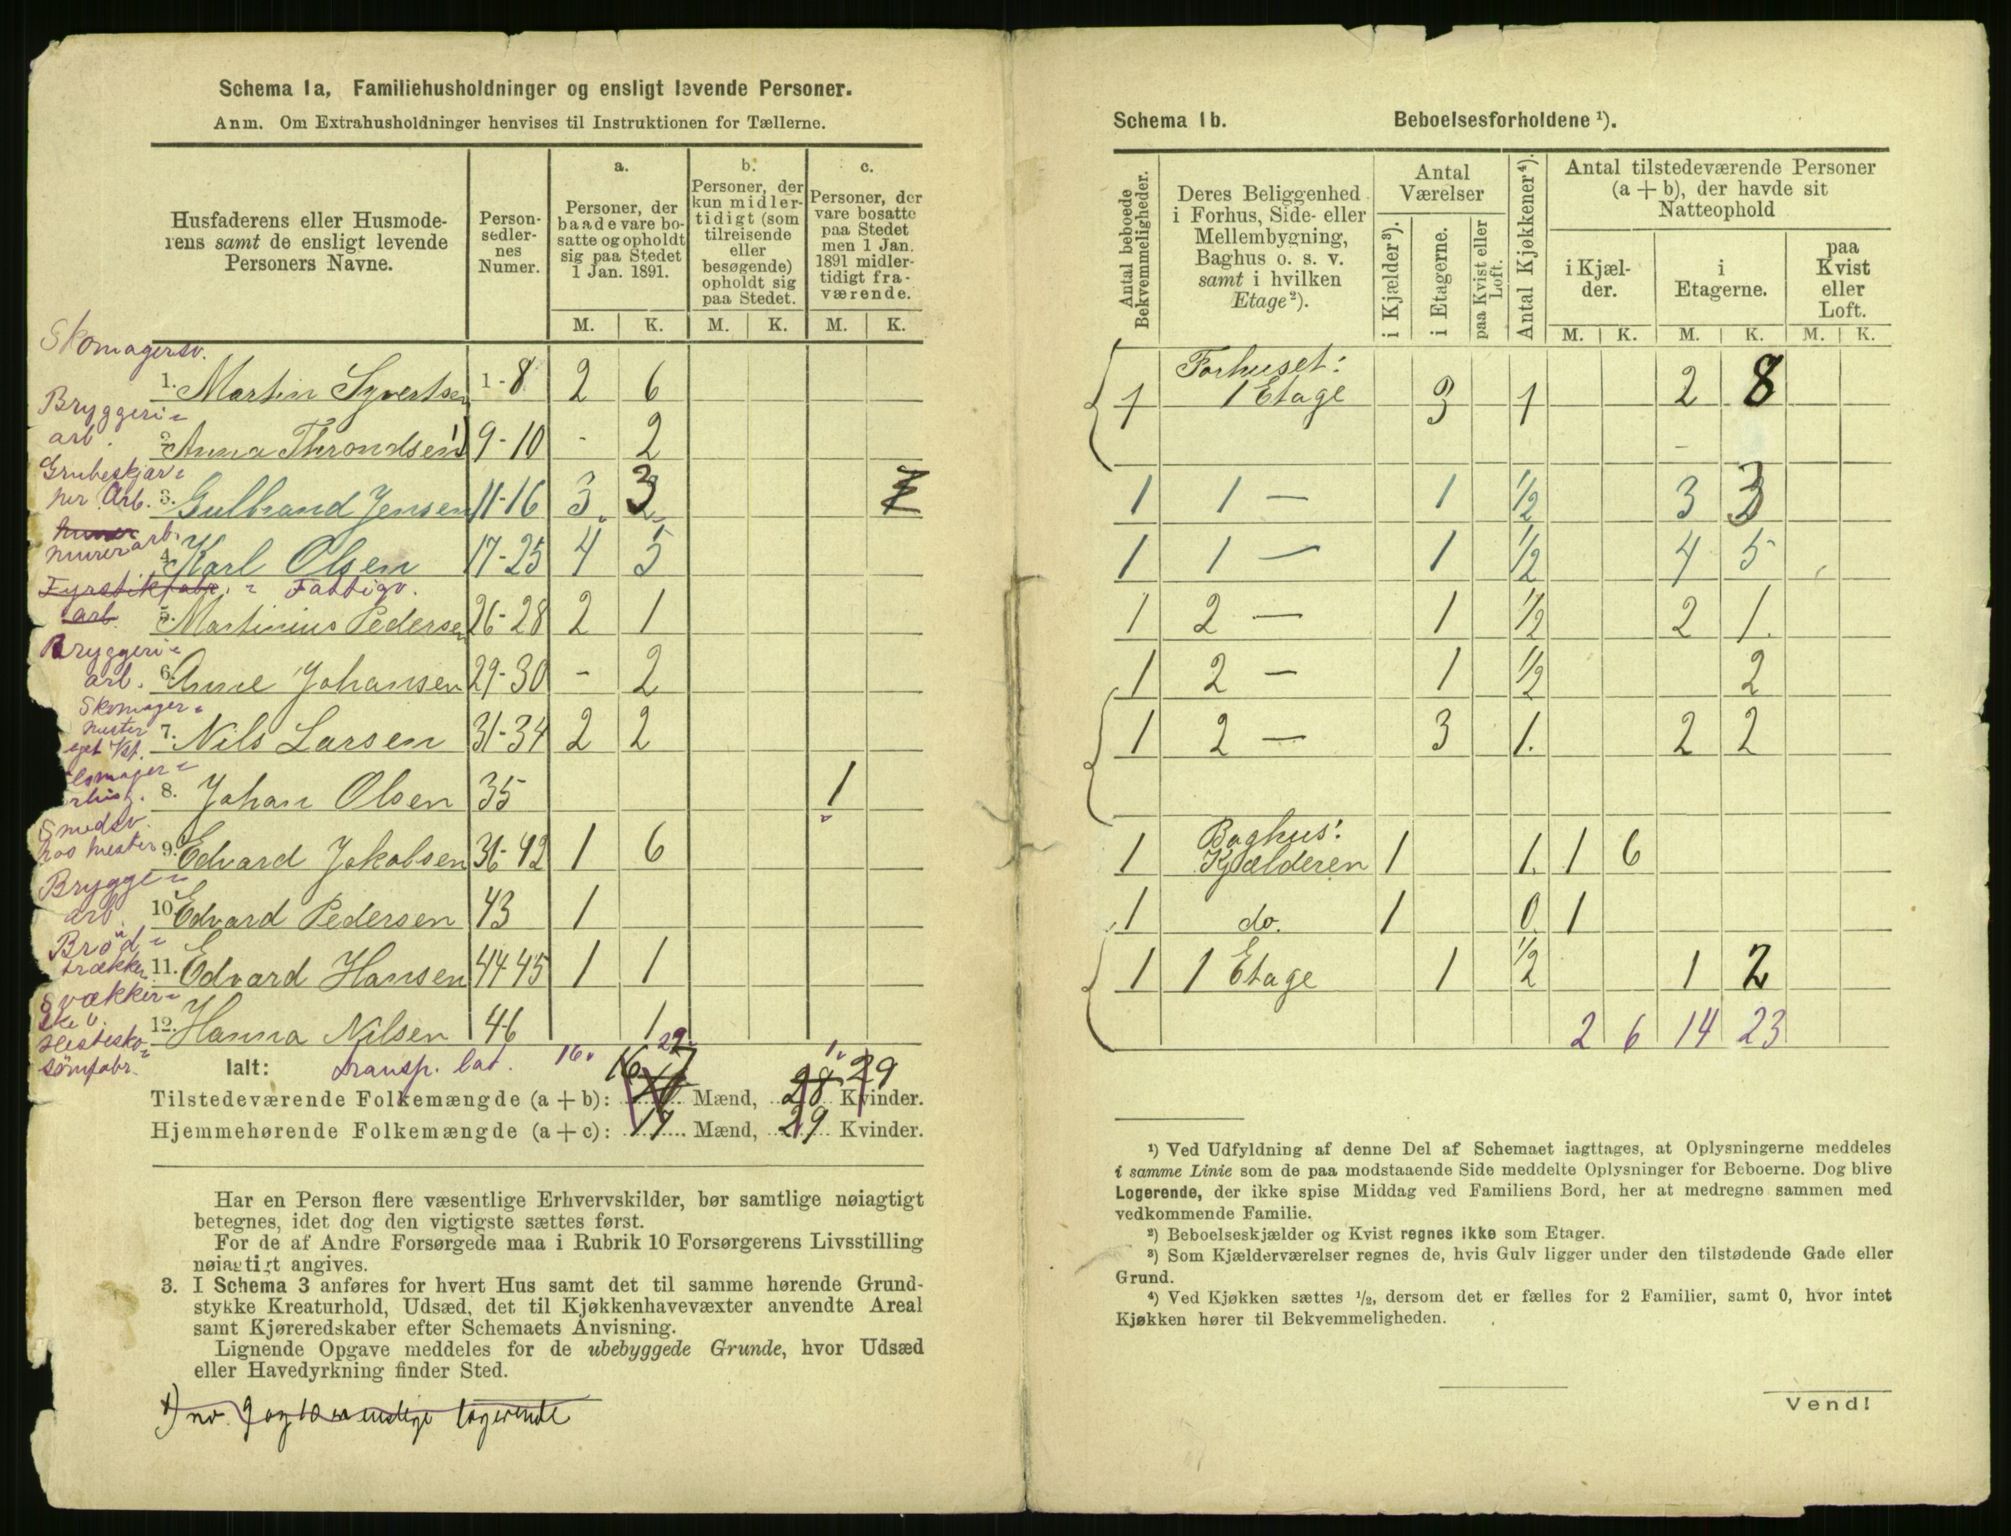 Schema 1a, Familiehusholdninger og ensligt levende Personer.
Anm. Om Extrahusholdninger henvises til Instruktionen for Tællerne.
Husfaderens eller Husmode-
rens samt de ensligt levende
Personers Navne.
Person-
sedler-
nes
Numer.
a.
Personer, der
baade vare bo-
satte og opholdt
sig paa Stedet
1 Jan. 1891.
b.
Personer, der
kun midler-
tidigt (som
tilreisende
eller
besøgende)
opholdt sig
paa Stedet.
c.
Personer, der
vare bosatte
paa Stedet
men 1 Jan.
1891 midler-
tidigt fra-
værende.
M. K. M. K. M. K.
Skomagersv.
1. Martin Syvertsen 1-8 2 6
Bryggeri=
arb.
2. Anna Throndsen 1) 9-10 - 2
Grubeskjær=
per Arb.
3. Gulbrand Jensen 11-16 3 3
murerarb.
4. Karl Olsen 17-25 4 5
Fyrstikfabr. = Fattigv.
arb.
5. Martinius Pedersen 26-28 2 1
Bryggeri=
arb.
6. Anne Johansen 29-30 - 2
Skomager=
mester
eget Vst.
7. Nils Larsen 31-34 2 2
8. Johan Olsen 35 1
Smedsv.
hos mester
9. Edvard Jakobsen 36-42 1 6
Brygge=
arb.
10. Edvard Pedersen 43 1
Bröd=
trækker
11. Edvard Hansen 44-45 1 1
12. Hanna Nilsen 46 1
Hestesko=
sømfabr.
Ialt: transp. lat. 16. 29. 1.
Tilstedeværende Folkemængde (a + b): 16 Mænd, 28 29 Kvinder.
Hjemmehørende Folkemængde (a + c): 17 Mænd, 29 Kvinder.
Har en Person flere væsentlige Erhvervskilder, bør samtlige nøiagtigt
betegnes, idet dog den vigtigste sættes først.
For de af Andre Forsørgede maa i Rubrik 10 Forsørgerens Livsstilling
nøiagtigt angives.
3. I Schema 3 anføres for hvert Hus samt det til samme hørende Grund-
stykke Kreaturhold, Udsæd, det til Kjøkkenhavevæxter anvendte Areal
samt Kjøreredskaber efter Schemaets Anvisning.
Lignende Opgave meddeles for de ubebyggede Grunde, hvor Udsæd
eller Havedyrkning finder Sted.
1) no. 9 og 10 er enslige logerende
Schema 1b. Beboelsesforholdene ¹).
Antal beboede
Bekvemmeligheder.
Deres Beliggenhed
i Forhus, Side- eller
Mellembygning,
Baghus o. s. v.
samt i hvilken
Etage²).
Antal
Værelser
i Kjælder³).
i Etagerne.
paa Kvist eller
Loft.
Antal Kjøkkener⁴).
Antal tilstedeværende Personer
(a + b), der havde sit
Natteophold
i Kjæl-
der.
i
Etagerne.
paa
Kvist
eller
Loft.
M. K. M. K. M. K.
Forhuset:
1 1 Etage 3 1 2 8
-
1 1 — 1 1/2 3 3
1 1 — 1 1/2 4 5
1 2 — 1 1/2 2 1.
1 2 — 1 1/2 2
1 2 — 3 1. 2 2
Baghus:
1 Kjælderen 1 1. 1 6
1 do. 1 0. 1
1 1 Etage 1 1/2 1 2
2 6 14 23
¹) Ved Udfyldning af denne Del af Schemaet iagttages, at Oplysningerne meddeles
i samme Linie som de paa modstaaende Side meddelte Oplysninger for Beboerne. Dog blive
Logerende, der ikke spise Middag ved Familiens Bord, her at medregne sammen med
vedkommende Familie.
²) Beboelseskjælder og Kvist regnes ikke som Etager.
³) Som Kjælderværelser regnes de, hvis Gulv ligger under den tilstødende Gade eller
Grund.
⁴) Ved Kjøkken sættes ½, dersom det er fælles for 2 Familier, samt 0, hvor intet
Kjøkken hører til Bekvemmeligheden.
Vend!